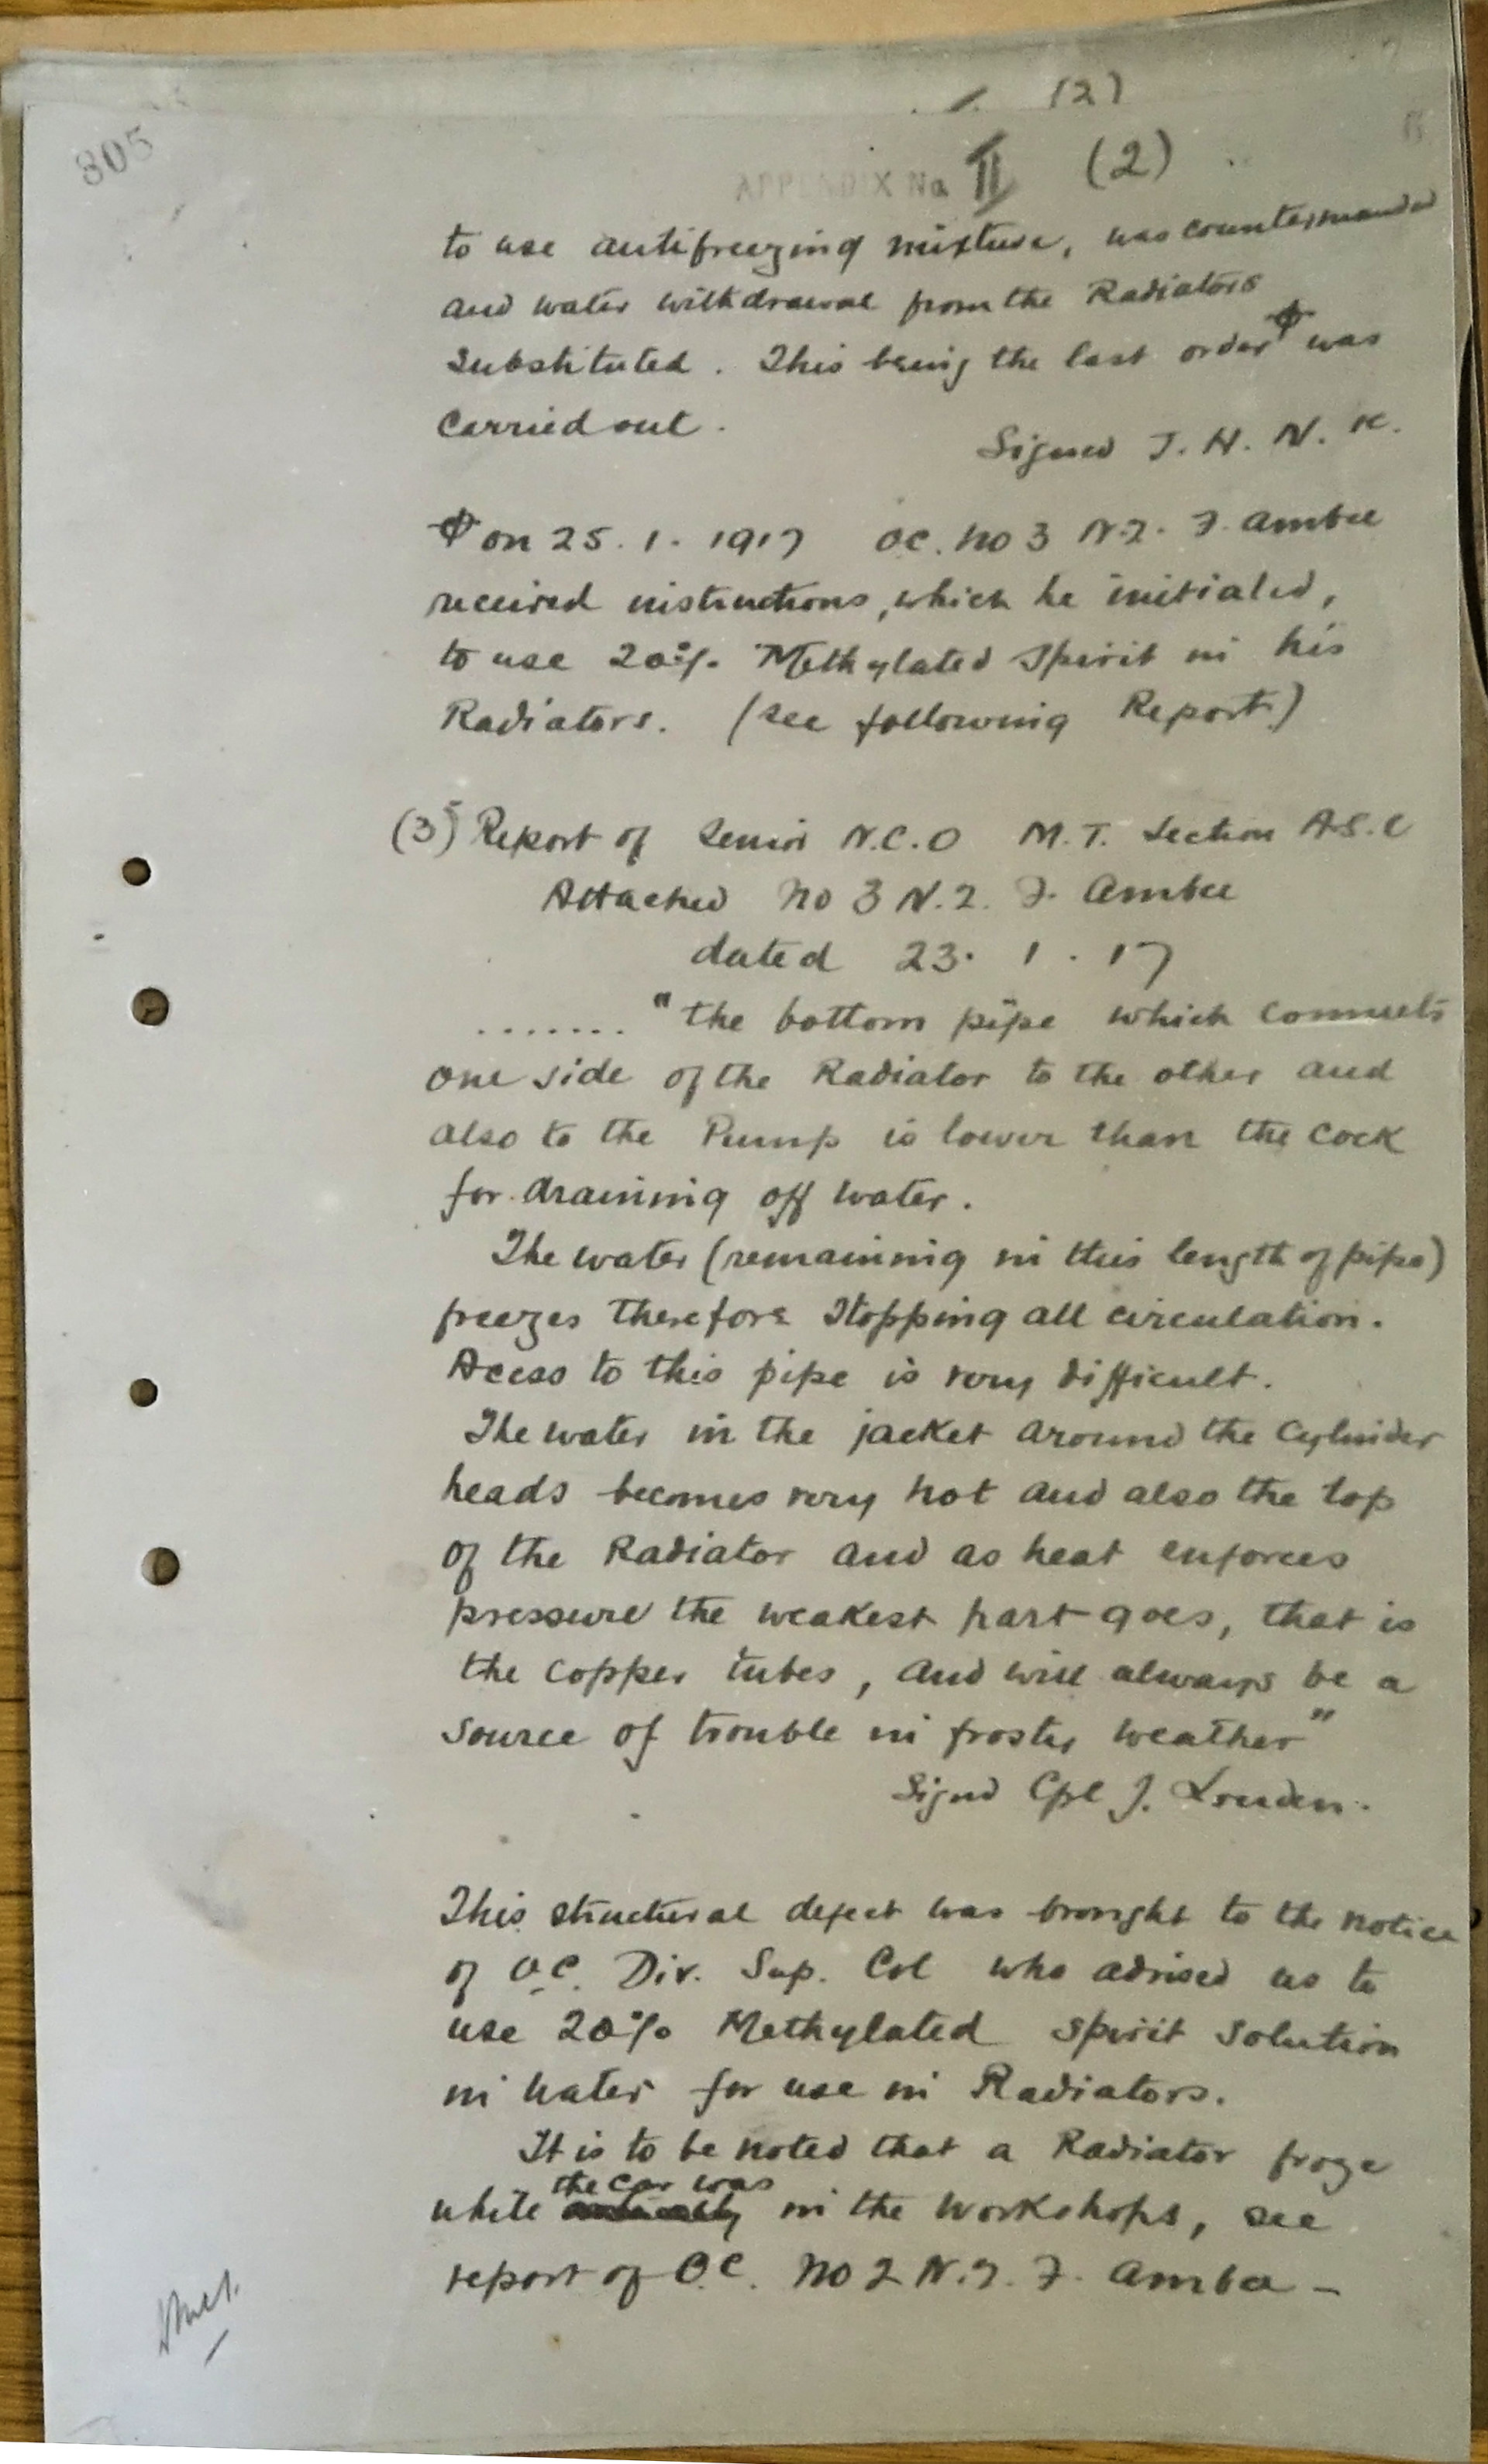 (2)
805
APPENDIX No II (2)
to use antifreezing mixture, was countermanded
and water withdrawal from the Radiators
substituted. This being the last order ϕ was
carried out.
Signed J. H. N. K.
ϕ on 25.1.1917 OC. No 3 N.Z. F. Ambce
received instructions, which he initialed,
to use 20% Methylated Spirit in his
Radiators. (see following Report.)
(3) Report of Senior N.C.O M.T. Section A.S.C
Attached No 3 N.Z. F. Ambce
dated 23.1.17
....... "the bottom pipe which connects
one side of the Radiator to the other and
also to the Pump is lower than the cock
for draining off water.
The water (remaining in this length of pipe)
freezes therefore stopping all circulation.
Acess to this pipe is very difficult.
The water in the jacket around the cylinder
heads becomes very hot and also the top
of the Radiator and as heat enforces
pressure the weakest part goes, that is
the copper tubes, and will always be a
source of trouble in frosty weather"
Signd Cpl J. Louden.
This structural defect was brought to the notice
of O.C. Div. Sup. Col who advised us to
use 20% Methylated spirit solution
in water for use in Radiators.
It is to be noted that a Radiator froze
while the car was in the workshops, see
report of O.C. No 2 N.Z. F. Amba -